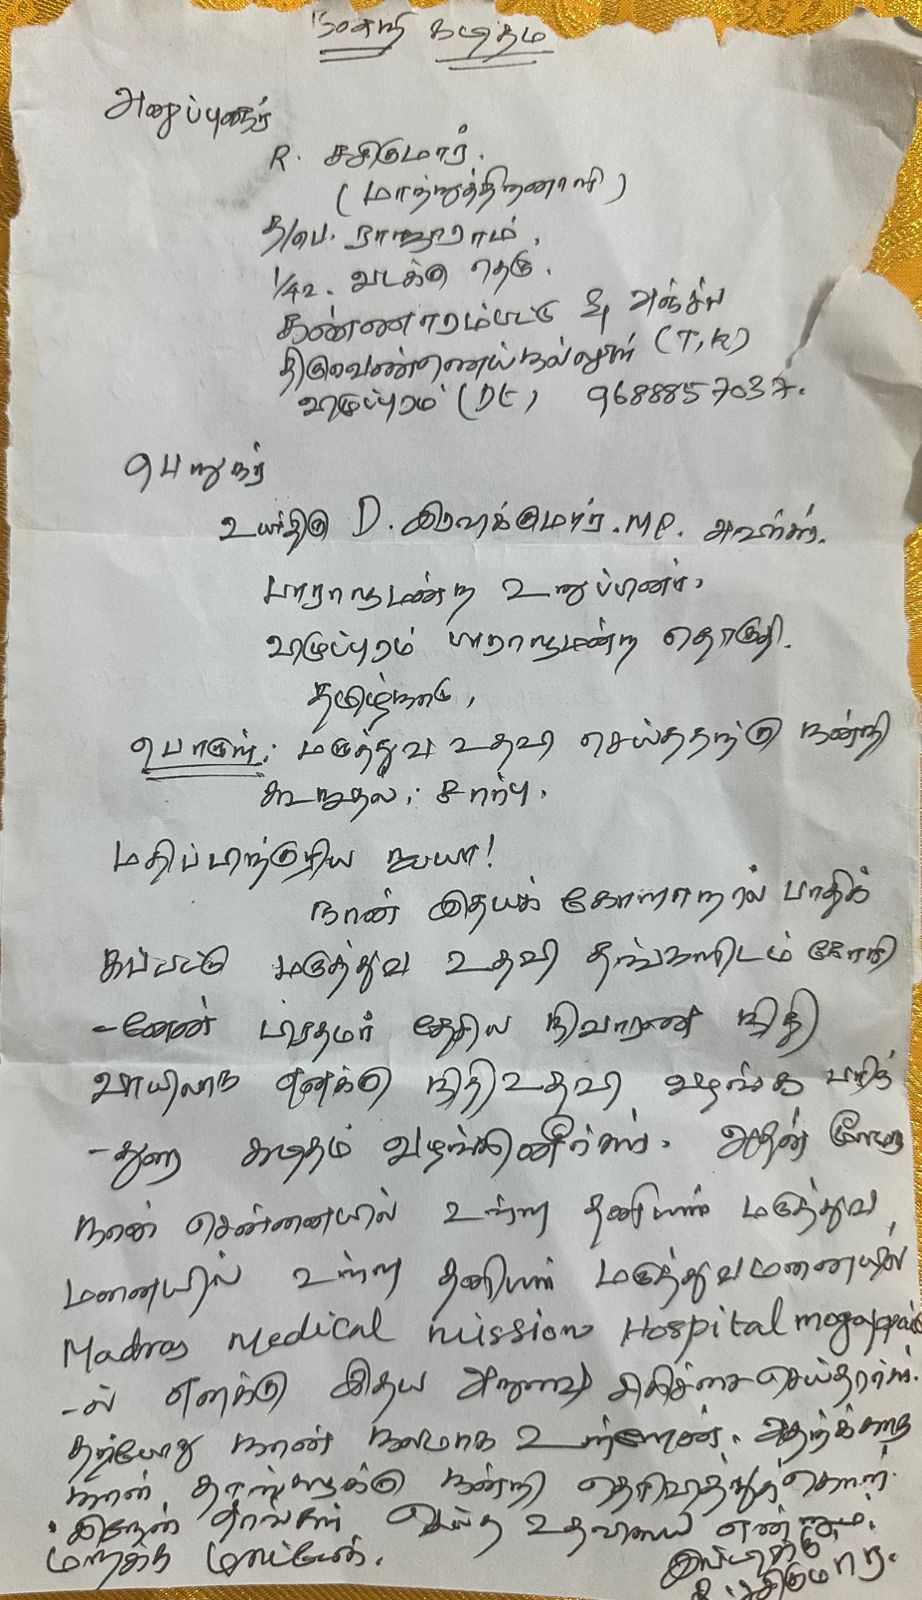 நன்றி கடிதம்
அனுப்புனர்
R. சசிகுமார்.
(மாற்றுத்திறனாளி)
த/பெ. ராஜாராம்.
1/42. வடக்கு தெரு.
கண்ணாரம்பட்டு & அஞ்சல்
திருவெண்ணெய்நல்லூர் (T,K)
விழுப்புரம் (Dt) 9688857037.
பெறுநர்
உயர்திரு D. இரவிக்குமார். MP. அவர்கள்.
பாராளுமன்ற உறுப்பினர்.
விழுப்புரம் பாராளுமன்ற தொகுதி.
தமிழ்நாடு,
பொருள்: மருத்துவ உதவி செய்ததற்கு நன்றி
கூறுதல்: சார்பு.
மதிப்பிற்குரிய ஐயா!
நான் இதயக் கோளாறால் பாதிக்
கப்பட்டு மருத்துவ உதவி தங்களிடம் கோரி
-னேன் பிரதமர் தேசிய நிவாரண நிதி
வாயிலாக எனக்கு நிதிஉதவி வழங்க பரிந்
-துரை கடிதம் வழங்கினீர்கள். அதன் மூலம்
நான் சென்னையில் உள்ள தனியார் மருத்துவ
மனையில் உள்ள தனியார் மருத்துவமனையில்
Madras Medical mission Hospital mogappair
-ல் எனக்கு இதய அறுவை சிகிச்சை செய்தார்கள்.
தற்போது நான் நலமாக உள்ளேன். அதற்க்காக
நான் தங்களுக்கு நன்றி தெரிவித்துக்கொள்
கிறேன் தாங்கள் செய்த உதவியை என்றும்
மறக்க மாட்டேன்.
இப்படிக்கு
R. சசிகுமார்.